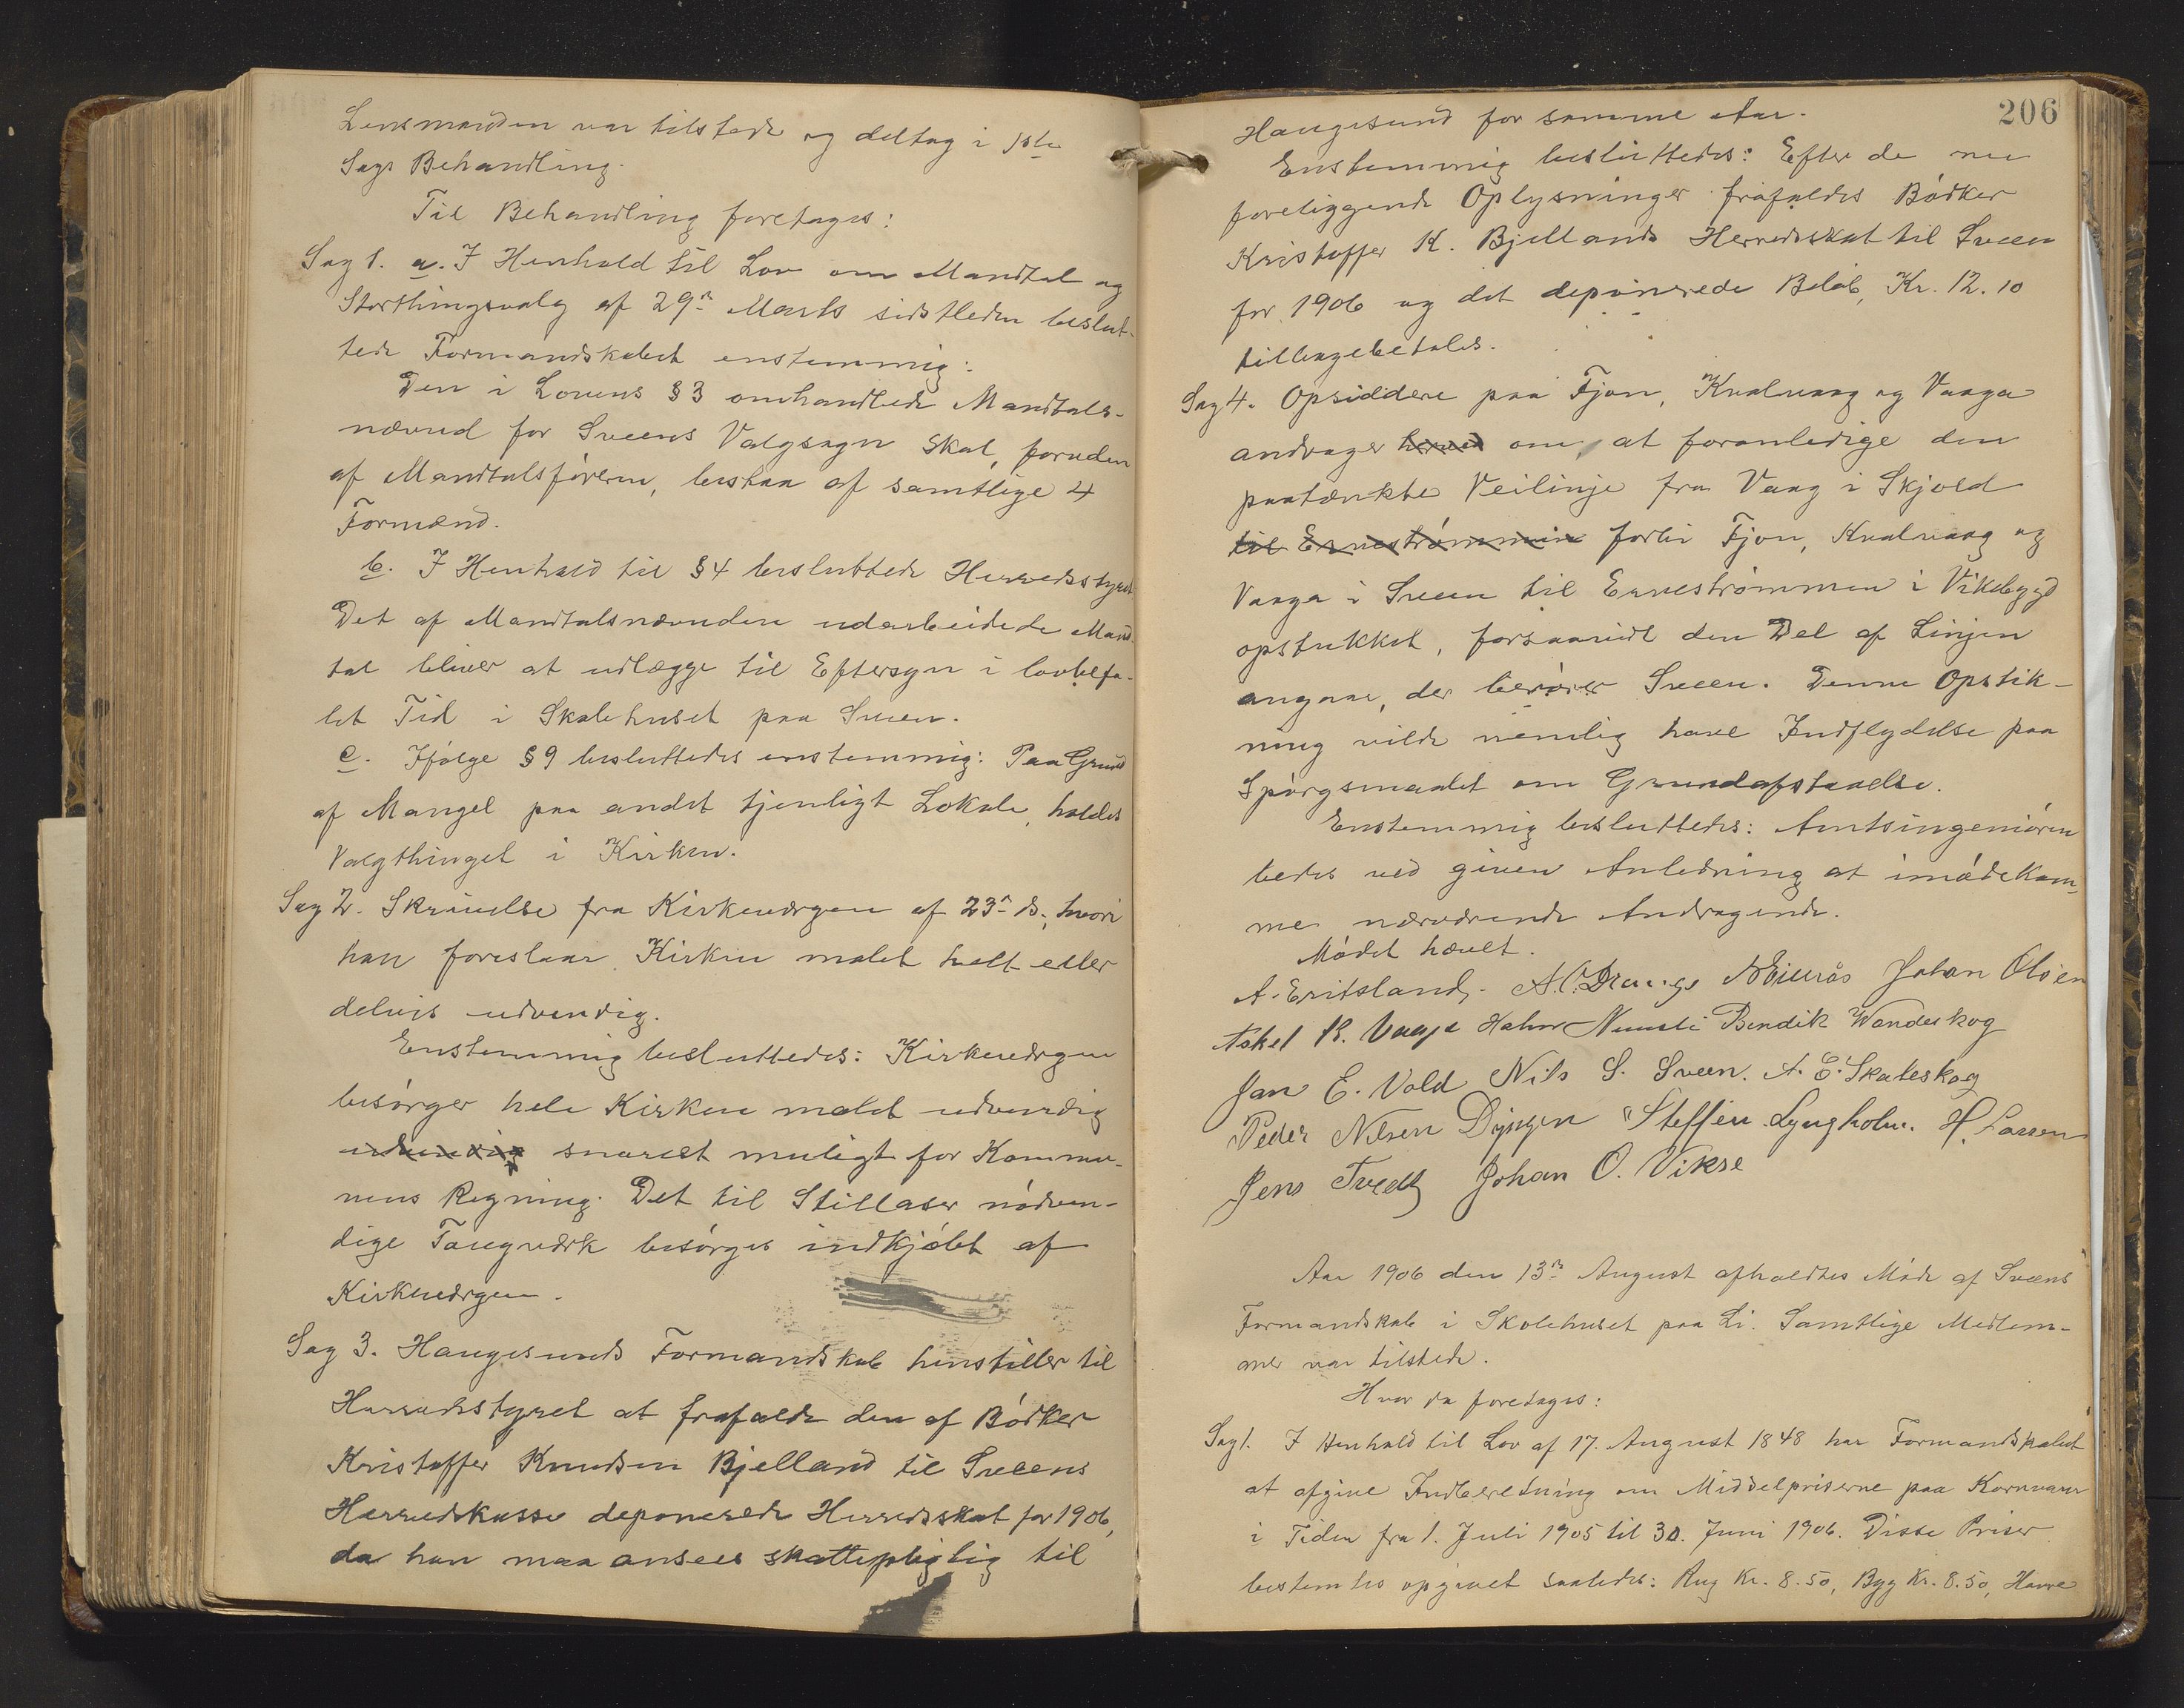 Lensmanden var tilstede og deltog i 1ste
Sags Behandling.
Til Behandling foretages:
Sag 1. a. I Henhold til Lov om Mandtal og
Storthingsvalg af 29n Marts sidstleden beslut-
tede Formandskabet enstemmig:
Den i Lovens § 3 omhandlede Mandtals-
nævnd for Sveens Valgsogn skal, foruden
af Mandtalsføreren, bestaa af samtlige 4
Formænd.
b. I Henhold til § 4 besluttede Herredsstyret
Det af Mandtalsnævnden udarbeidede Mand
tal bliver at udlægge til Eftersyn i lovbefa-
let Tid i Skolehuset paa Sveen.
c. Ifølge § 9 besluttedes enstemmig: Paa Grund
af Mangel paa andet tjenligt Lokale, holdes
Valgthinget i Kirken.
Sag 2. Skrivelse fra Kirkeværgen af 23n ds., hvori
han foreslaar Kirken malet helt eller
delvis udvendig.
Enstemmig besluttedes: Kirkeværgen
besørger hele Kirken malet udvendig
udvendig snarest muligt for Kommu-
nens Regning. Det til Stillaser nødven-
dige Taugværk besørges indkjøbt af
Kirkeværgen.
Sag 3. Haugesunds Formandskab henstiller til
Herredsstyret at frafalde den af Bødker
Kristoffer Knudsen Bjelland til Sveens
Herredskasse deponerede Herredsskat for 1906,
da han maa ansees skattepligtig til
206
Haugesund for samme Aar.
Enstemmig besluttedes: Efter de nu
foreliggende Oplysninger frafaldes Bødker
Kristoffer K. Bjellands Herredsskat til Sveen
for 1906 og det deponerede Beløb, Kr. 12.10
tilbagebetales.
Sag 4. Opsiddere paa Fjon, Kvalvaag og Vaaga
andrager herved om, at foranledige den
paatænkte Veilinje fra Vaag i Skjold
til Ernestrømmen forbi Fjon, Kvalvaag og
Vaaga i Sveen til Ernestrømmen i Vikebygd
opstukket, forsaavidt den Del af Linjen
angaar, der berører Sveen. Denne Opstik-
ning vilde nemlig have Indflydelse paa
Spørgsmaalet om Grundafstaaelse.
Enstemmig besluttedes: Amtsingeniøren
bedes ved given Anledning at imødekom-
me nærværende Andragende.
Mødet hævet.
A. Eritsland. A. O. Drange Johan Olsen
Askel K. Vaage Hahn Bendik Wandeskog
Jan E. Vold Nils S. Sveen. A. E. Skateskog
Peder Nilsen Steffen Lyngholm. H. Larsen
Jens Tvedt Johan O. Vikse
Aar 1906 den 13n August afholdtes Møde af Sveens
Formandskab i Skolehuset paa Li. Samtlige Medlem-
mer var tilstede.
Hvor da foretages:
Sag 1. I Henhold til Lov af 17. August 1848 har Formandskabet
at afgive Indberetning om Middelpriserne paa Kornvarer
i Tiden fra 1. Juli 1905 til 30. Juni 1906. Disse Priser
bestemtes opgivet saaledes: Rug Kr. 8.50, Byg Kr. 8.50, Havre